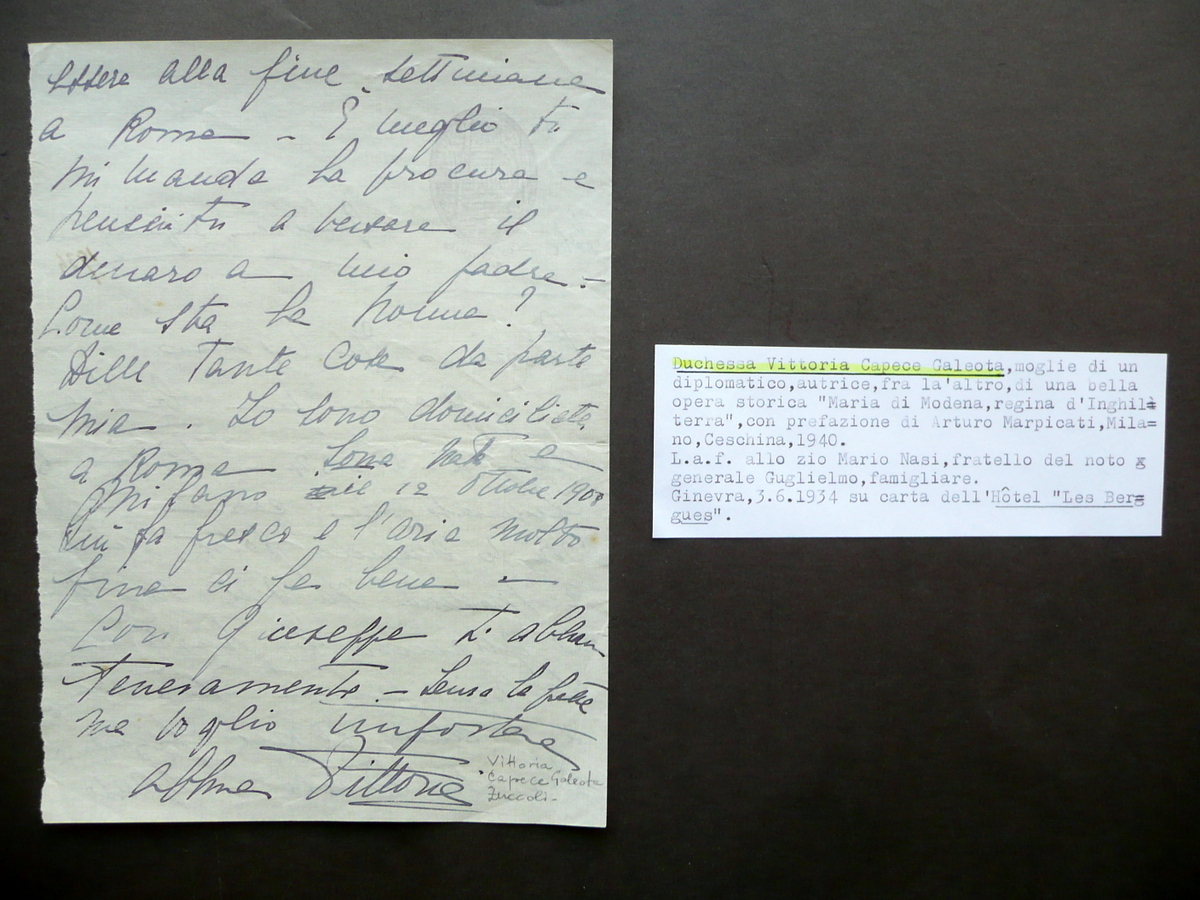 essere alla fine settimana
a Roma - È meglio tu
mi manda la procura e
pensi tu a versare il
denaro a mio padre -
Come sta la Nonna?
Dille tante cose da parte
mia. Io sono domiciliata
a Roma Sono nata a
Milano il 12 Ottobre 1900
Qui fa fresco e l'aria molto
fina ci fa bene -
Con Giuseppe ti abbraccio
teneramente. - Scusa la fretta
ma voglio impostare
Vittoria
Vittoria
Capece Galeota
Zuccoli -
Duchessa Vittoria Capece Galeota,moglie di un
diplomatico,autrice,fra la'altro,di una bella
opera storica "Maria di Modena,regina d'Inghil=
terra",con prefazione di Arturo Marpicati,Mila=
no,Ceschina,1940.
L.a.f. allo zio Mario Nasi,fratello del noto g
generale Guglielmo,famigliare.
Ginevra,3.6.1934 su carta dell'Hôtel "Les Berg=
gues".